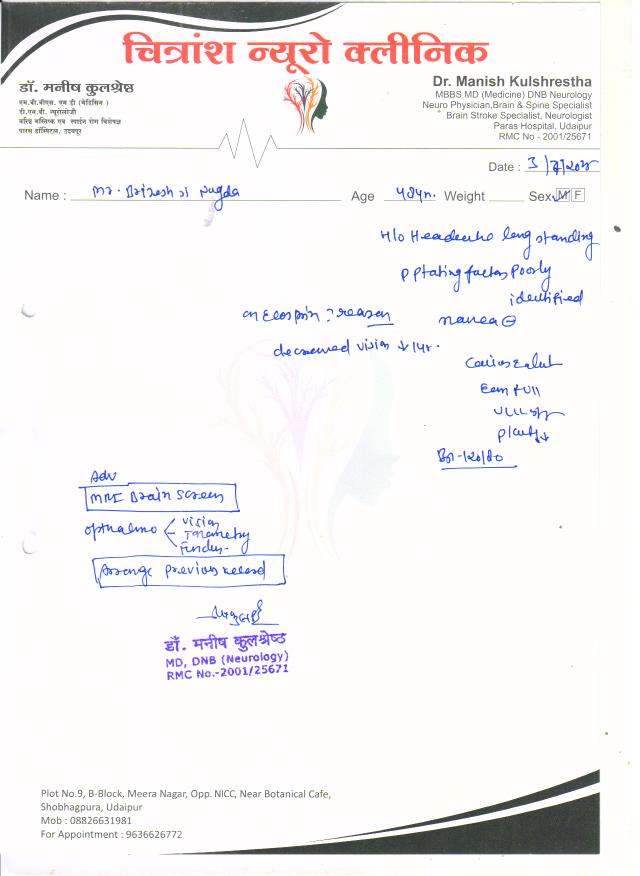 चित्रांश न्यूरो क्लीनिक
डॉ. मनीष कुलश्रेष्ठ
एम.बी.बी.एस. एम डी (मेडिसिन)
डी.एन.बी. न्यूरोलोजी
वरिष्ठ मस्तिष्क एवं स्पाईन रोग विशेषज्ञ
पारस हॉस्पिटल, उदयपुर
Dr. Manish Kulshrestha
MBBS MD (Medicine) DNB Neurology
Neuro Physician,Brain & Spine Specialist
Brain Stroke Specialist, Neurologist
Paras Hospital, Udaipur
RMC No - 2001/25671
Date : 3
Name : Mr. Age Weight Sex M F
H/o Headache long standing
factors Poorly
identified
? reason
nausea ⊖
decreased vision ↓ 1yr.
Conscious
EOM full
BP-120/80
Adv
MRI Brain Screen
vision
Fundus
Arrange previous record
डॉ. मनीष कुलश्रेष्ठ
MD, DNB (Neurology)
RMC No.-2001/25671
Plot No.9, B-Block, Meera Nagar, Opp. NICC, Near Botanical Cafe,
Shobhagpura, Udaipur
Mob : 08826631981
For Appointment : 9636626772